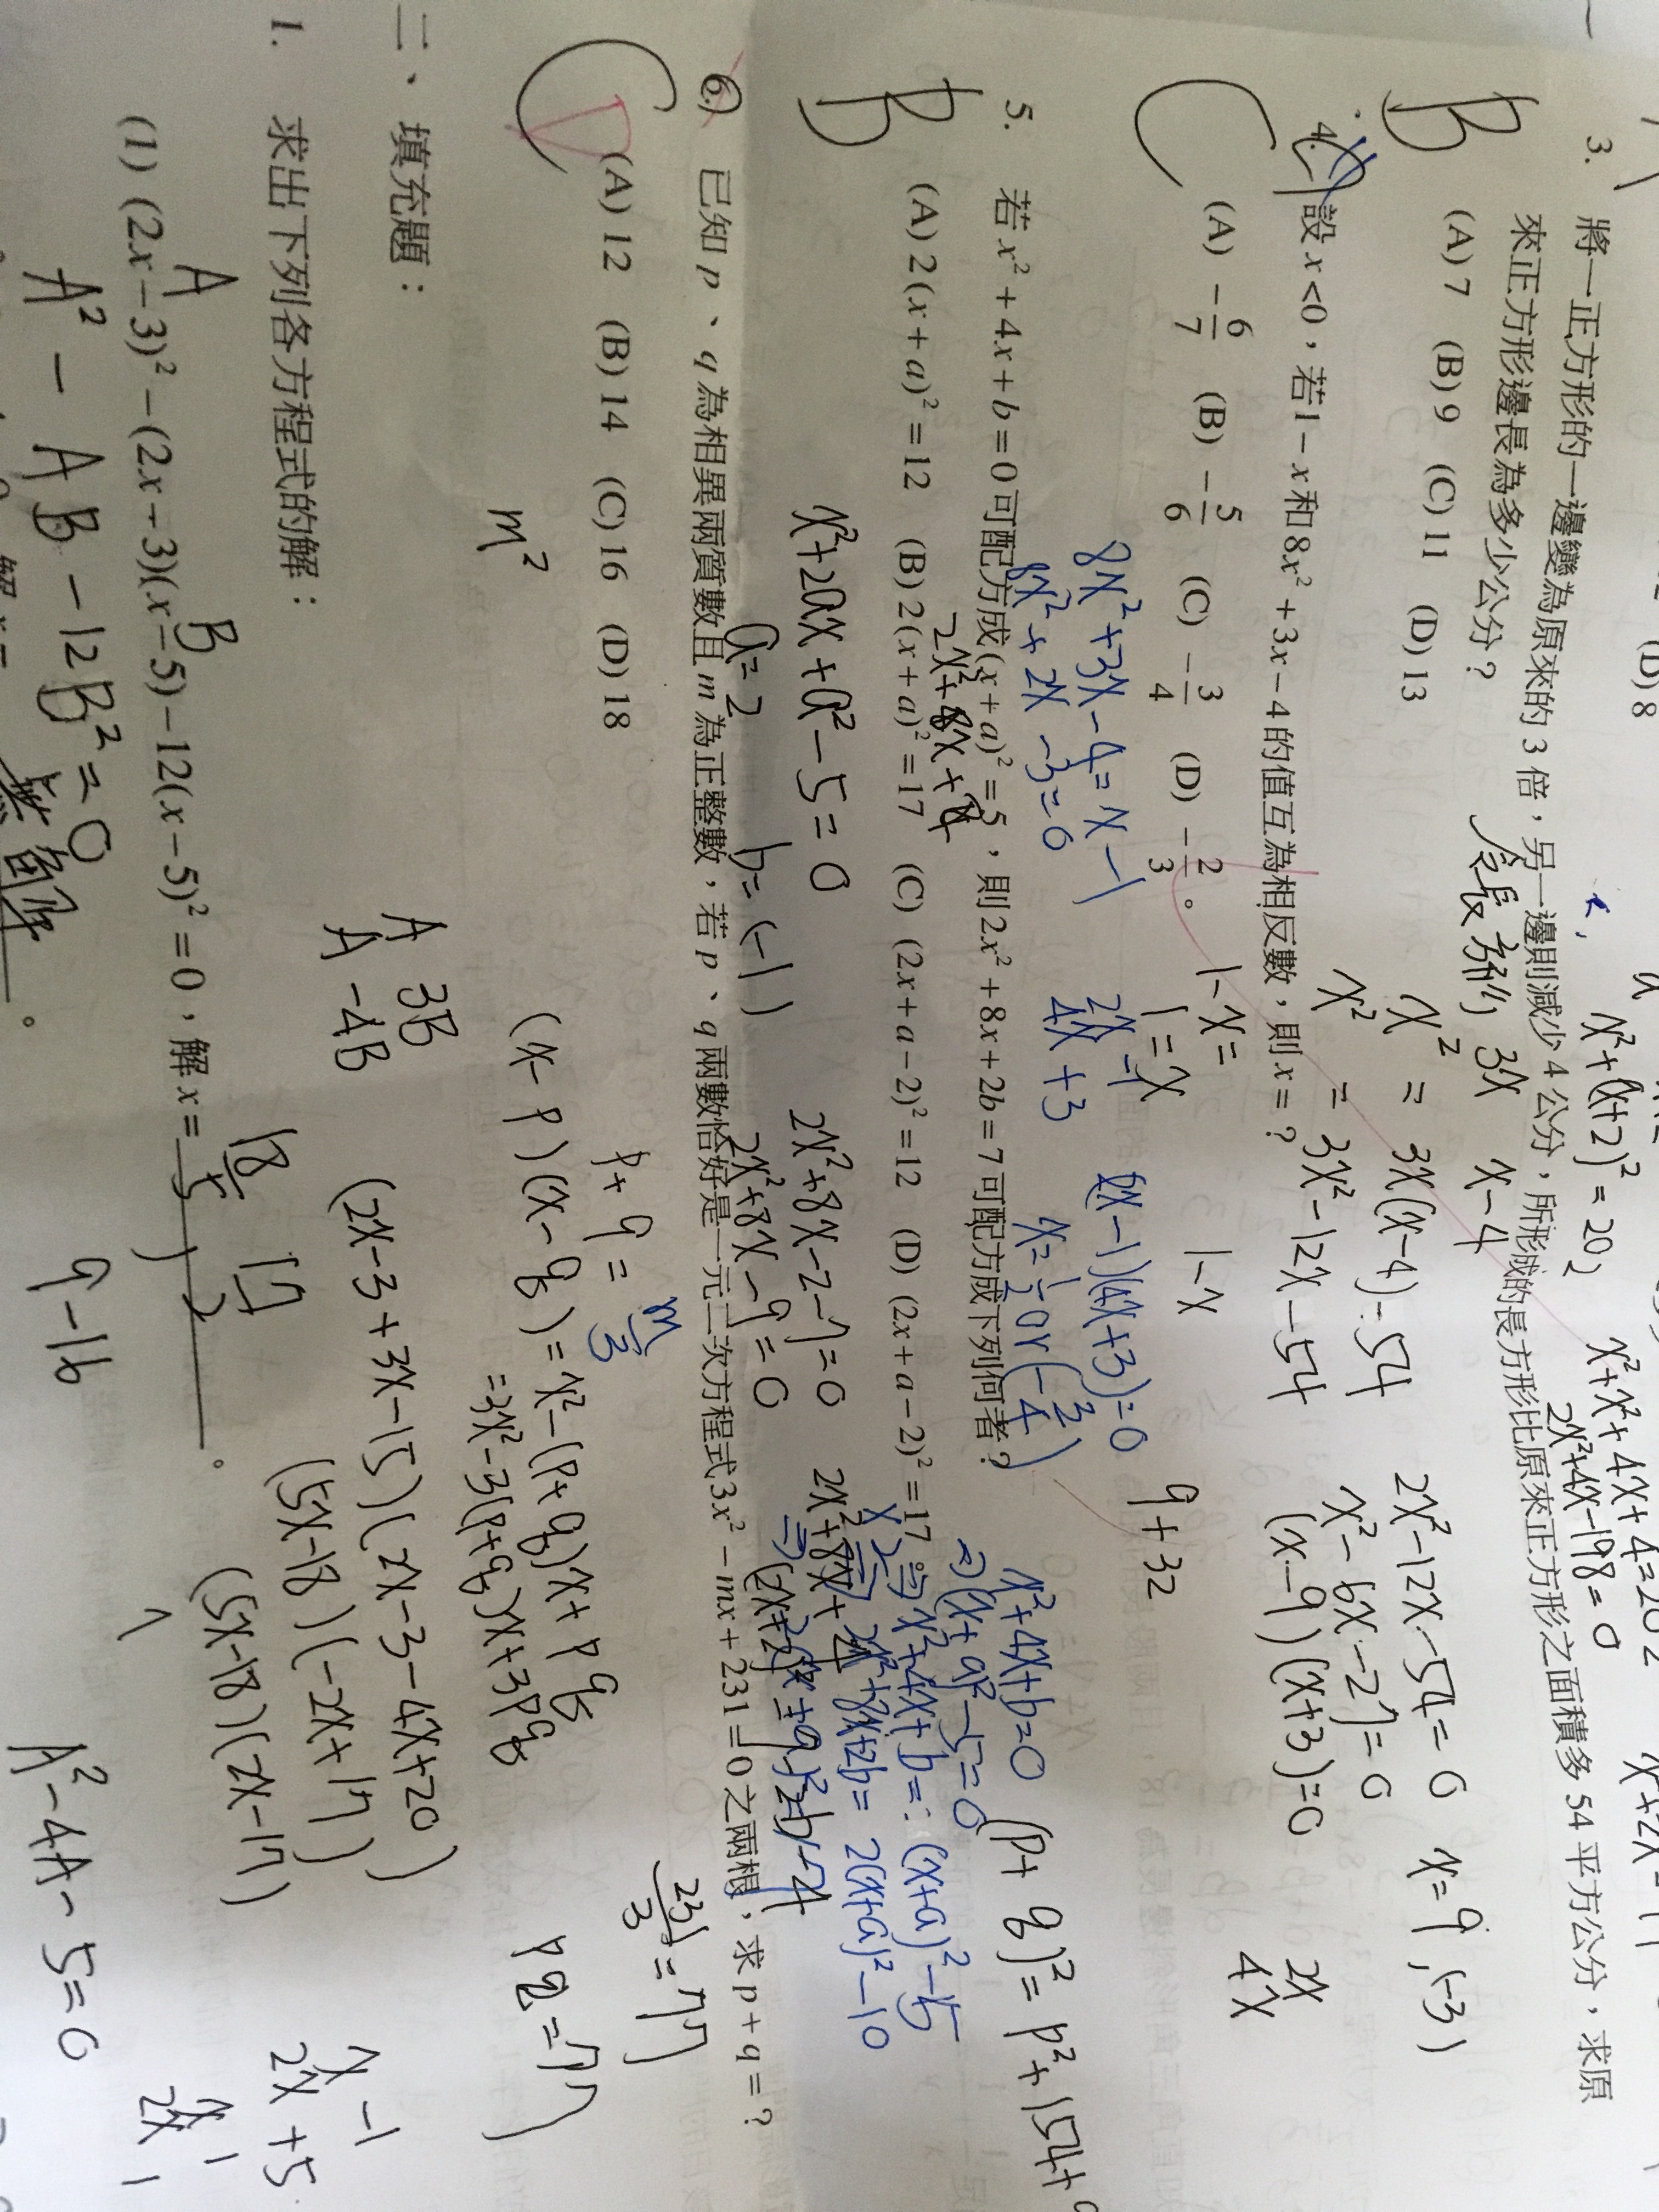 (D) 8
x²+(x+2)²=202
x²+x²+4x+4=202
2x²+4x-198=0
3. 將一正方形的一邊變為原來的 3 倍，另一邊則減少 4 公分，所形成的長方形比原來正方形之面積多 54 平方公分，求原
來正方形邊長為多少公分？
(A) 7 (B) 9 (C) 11 (D) 13
B
3x x-4
x² = 3x(x-4)-54
x² = 3x²-12x-54
2x²-12x-54=0
x²-6x-27=0
(x-9)(x+3)=0
x=9,(-3)
4. 設 x<0，若 1-x 和 8x²+3x-4 的值互為相反數，則 x=？
(A) -6/7 (B) -5/6 (C) -3/4 (D) -2/3 。
C
1-x=
1=x
1-x
9+32
2x
4x
8x²+3x-4=x-1
8x²+2x-3=0
2x -1
4x +3
(2x-1)(4x+3)=0
x=1/2 or (-3/4)
5. 若 x²+4x+b=0 可配方成 (x+a)²=5，則 2x²+8x+2b=7 可配方成下列何者？
(A) 2(x+a)²=12 (B) 2(x+a)²=17 (C) (2x+a-2)²=12 (D) (2x+a-2)²=17
B
x²+2ax+a²-5=0
a=2 b=(-1)
2x²+8x-2-7=0
2x²+8x-9=0
x²+4x+b=0
⇒(x+a)²-5=0
x²+4x+b=(x+a)²-5
2x²+8x+2b=2(x+a)²-10
(p+q)²=p²+154+
6. 已知 p、q 為相異兩質數且 m 為正整數，若 p、q 兩數恰好是一元二次方程式 3x²-mx+231=0 之兩根，求 p+q=？
(A) 12 (B) 14 (C) 16 (D) 18
C
D
m²
p+q= m/3
231/3=77
(x-p)(x-q)=x²-(p+q)x+pq
=3x²-3(p+q)x+3pq
pq=77
二、填充題：
1. 求出下列各方程式的解：
A 3B
A -4B
(2x-3+3x-15)(2x-3-4x+20)
(5x-18)(-2x+17)
(5x-18)(2x-17)
x -1
2x +5
A B
(1) (2x-3)²-(2x-3)(x-5)-12(x-5)²=0，解 x= 18/5, 17/2 。
A²-AB-12B²=0
9-16
A²-4A-5=0
無解